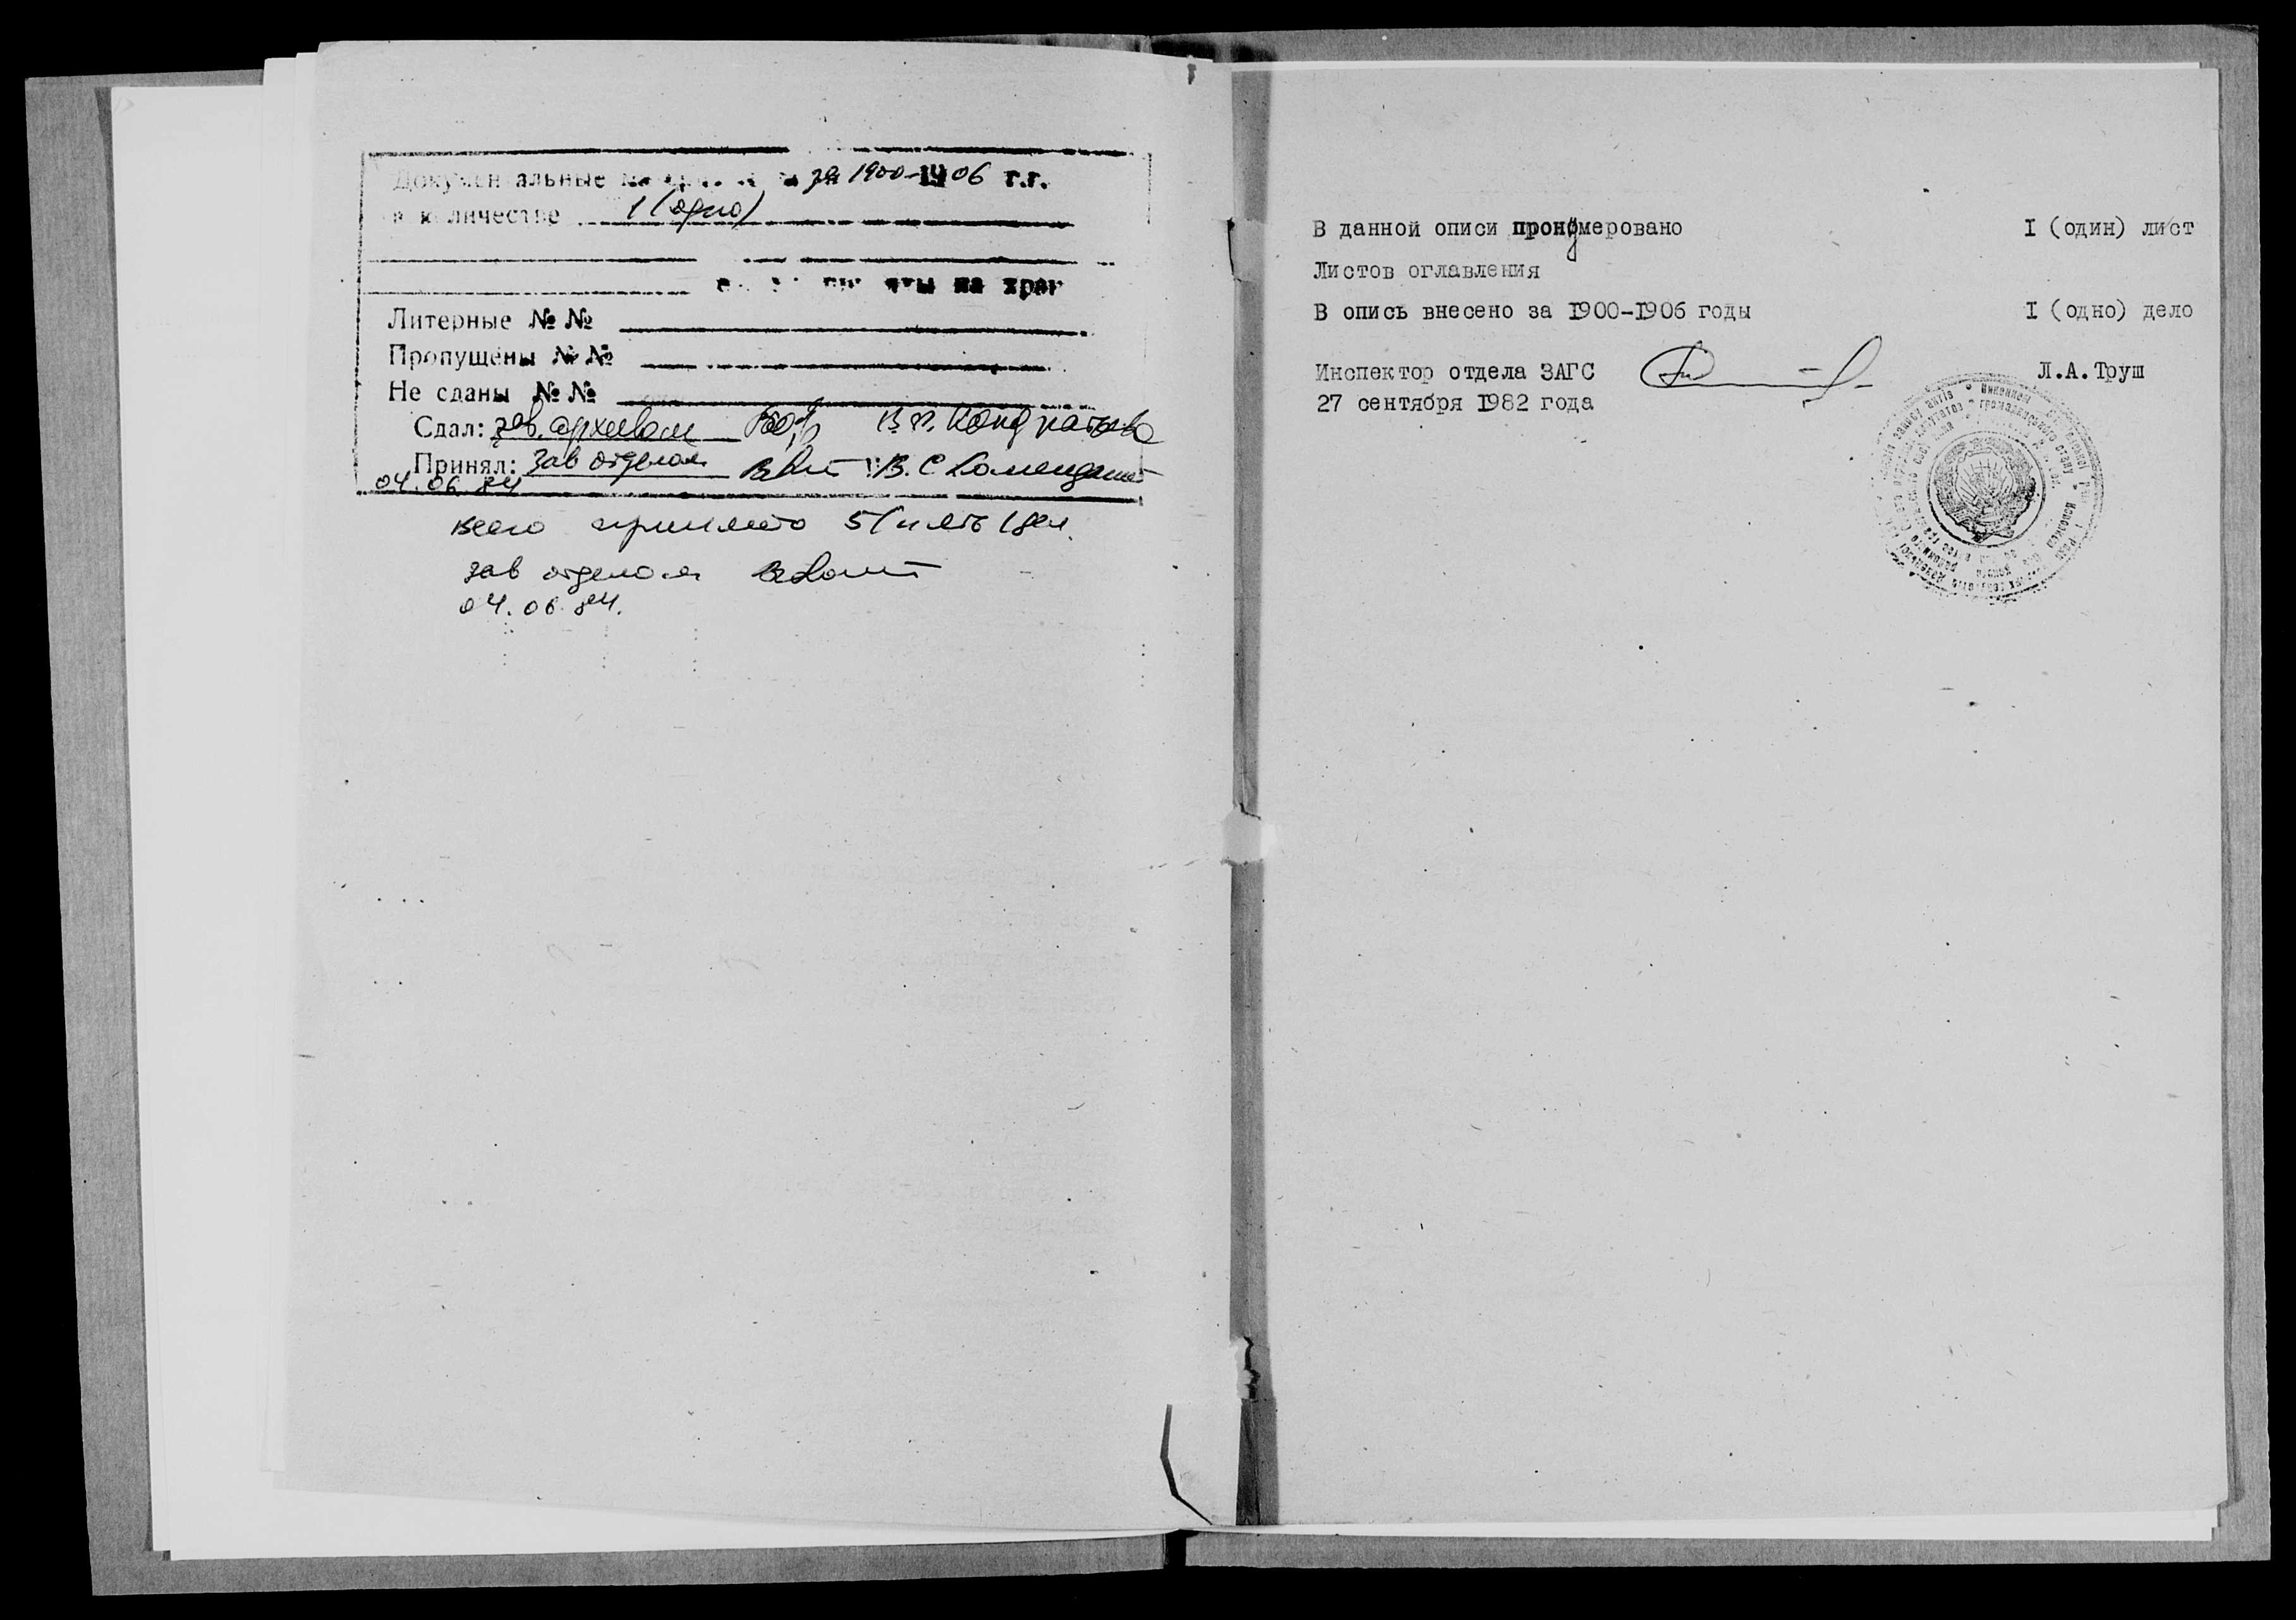 Документальные за 1900-1906 г.г.
в количестве 1 (одно)
яты на хран
Литерные №№
Пропущены №№
Не сданы №№
Сдал: зав. архивом В.П. Кондратьева
Принял: Зав отделом В.С Комендант
04.06.84
всего принято 5 (пять) дел.
Зав отделом
04.06.84.
В данной описи пронумеровано I (один) лист
Листов оглавления
В опись внесено за 1900-1906 годы I (одно) дело
Инспектор отдела ЗАГС Л.А.Труш
27 сентября 1982 года